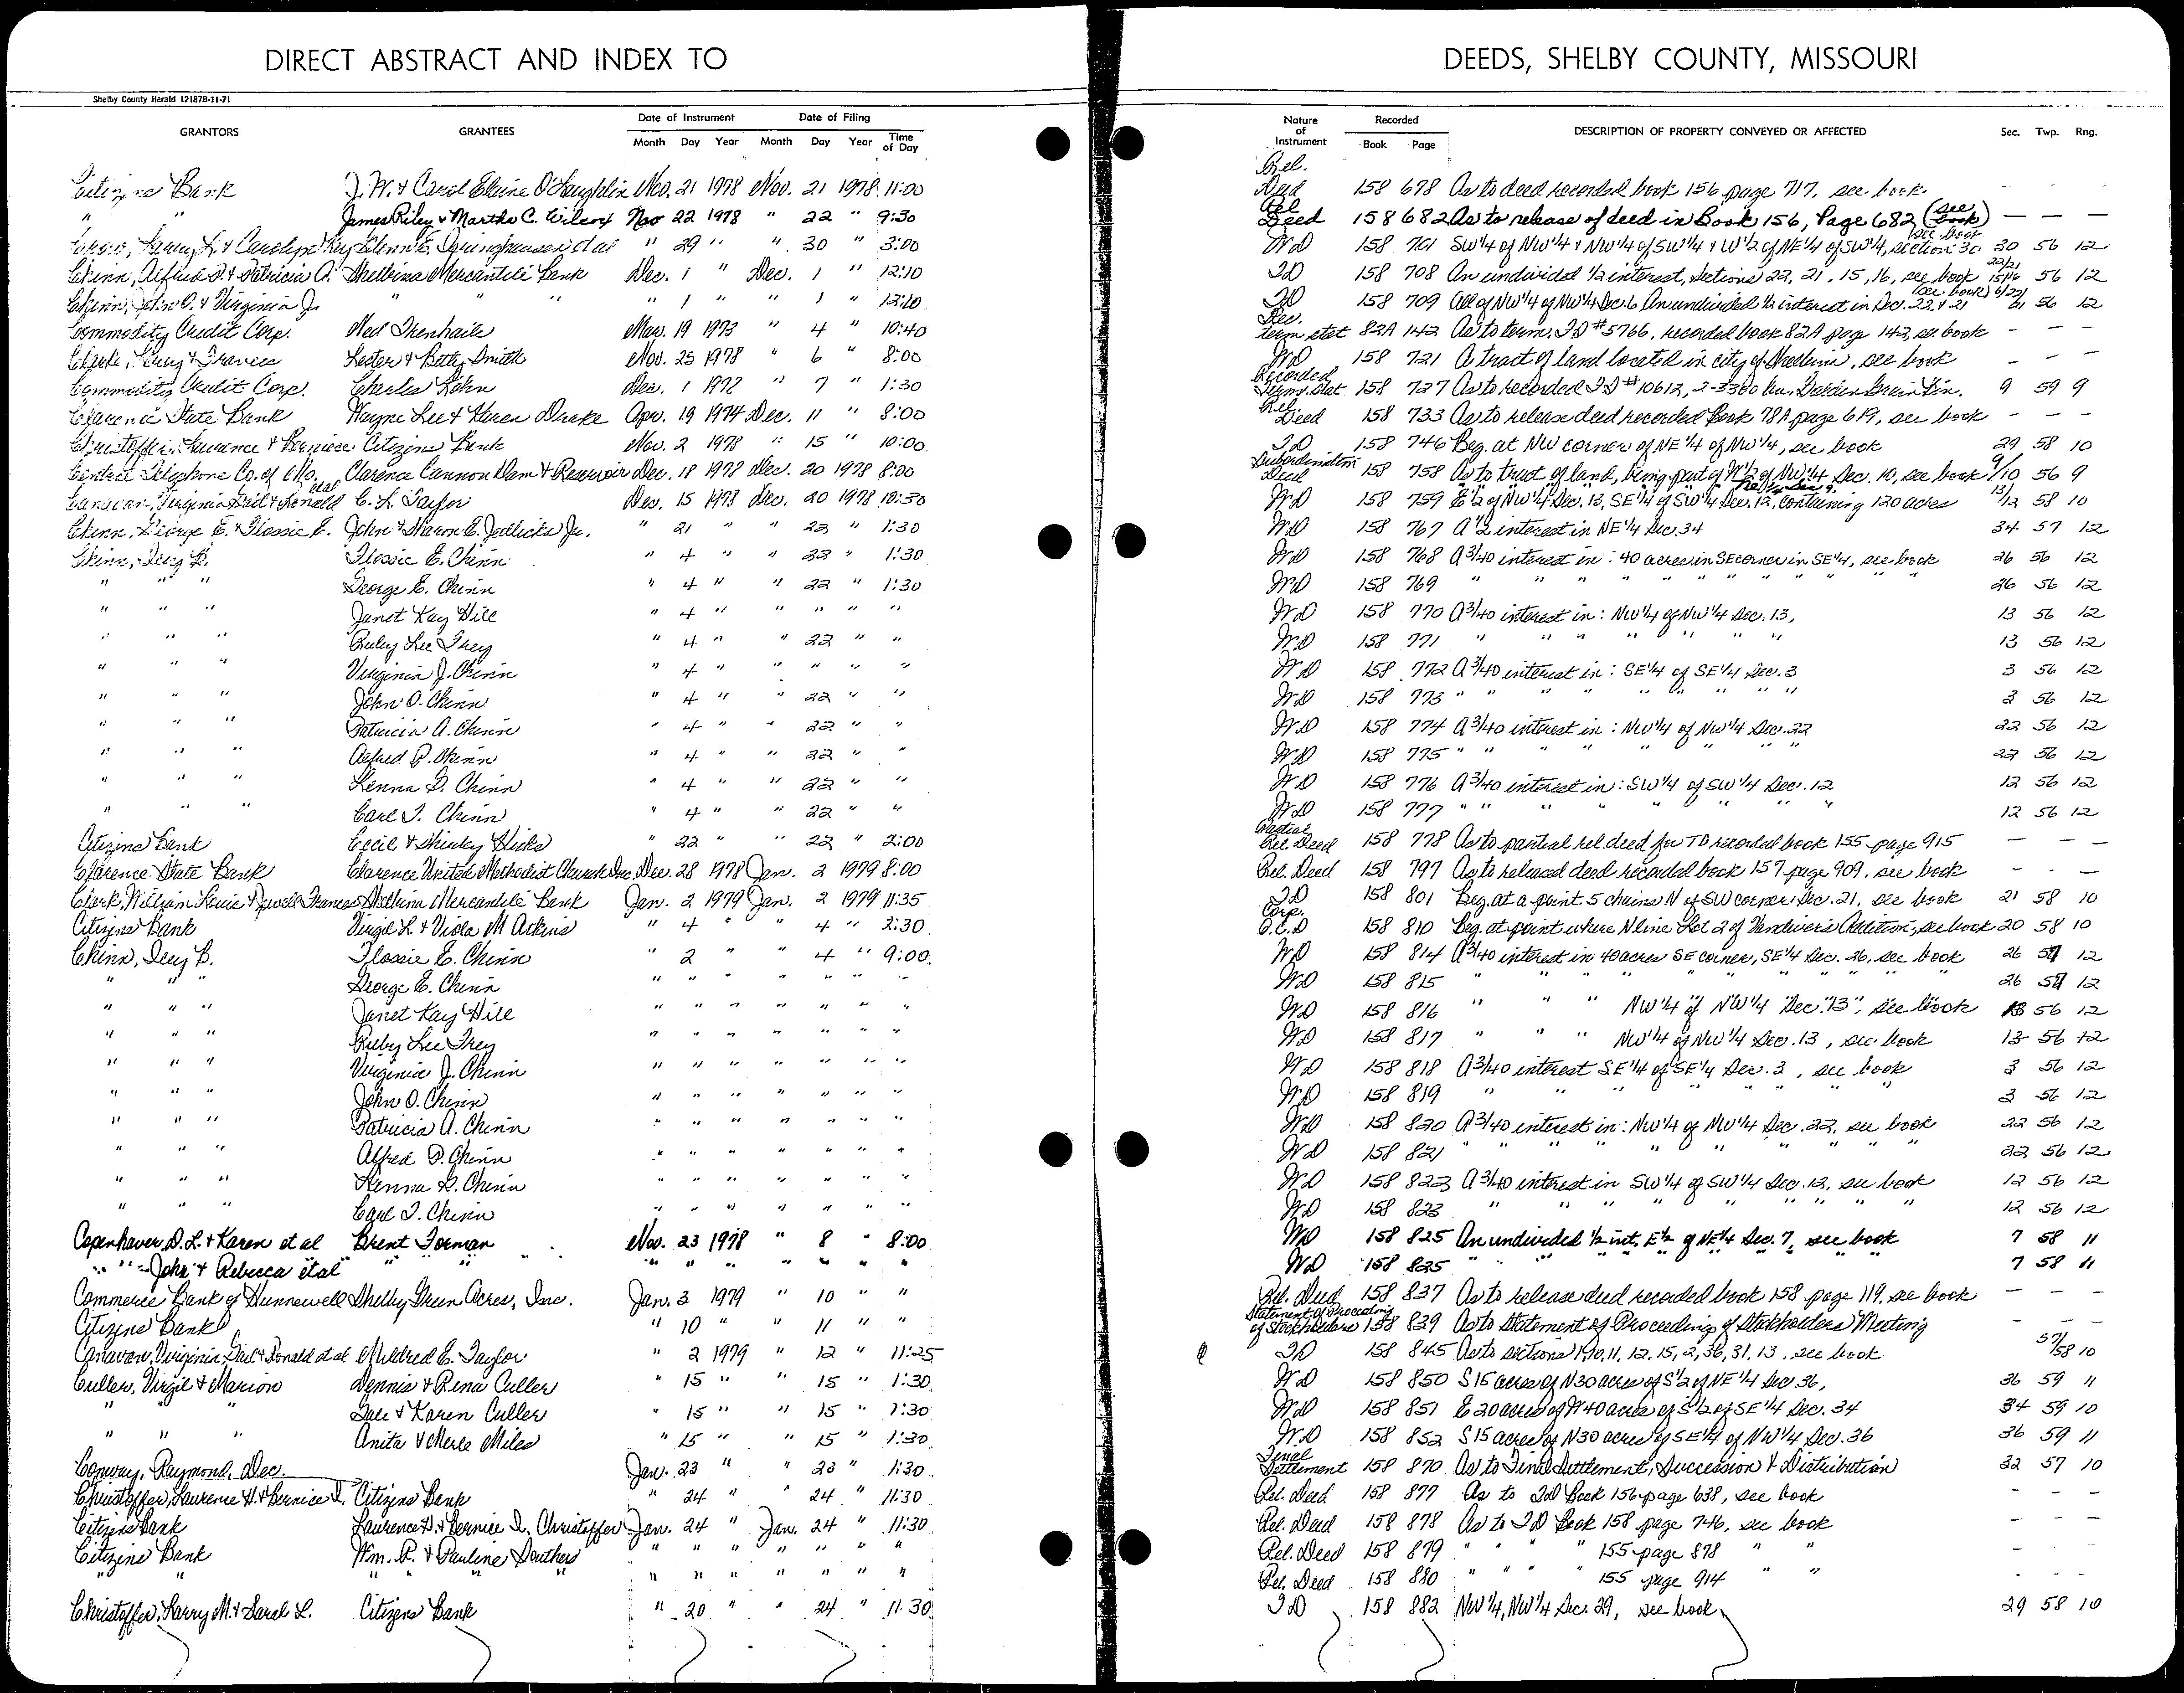 DIRECT ABSTRACT AND INDEX TO
DEEDS, SHELBY COUNTY, MISSOURI
Shelby County Herald 12187B-11-71
GRANTORS GRANTEES Date of Instrument Month Day Year Date of Filing Month Day Year Time of Day Nature of Instrument Recorded Book Page DESCRIPTION OF PROPERTY CONVEYED OR AFFECTED Sec. Twp. Rng.
Citizens Bank J. W. & Carol Elaine O'Laughlin Nov. 21 1978 Nov. 21 1978 11:00 Rel. Deed 158 678 As to deed recorded book 156 page 717, see book - - -
" " James Riley & Martha C. Wilcox Nov 22 1978 " 22 " 9:30 Rel Deed 158 682 As to release of deed in Book 156, Page 682 (see book) — — —
Larry L. & Carolyn Kay Glenn E. et al " 29 " " 30 " 3:00 WD 158 701 SW¼ of NW¼ & NW¼ of SW¼ & W½ of NE¼ of SW¼, section 30 see book 30 56 12
Chinn, Alfred P. & Patricia A. Shelbina Mercantile Bank Dec. 1 " Dec. 1 " 12:10 TD 158 708 An undivided ½ interest, Sections 22, 21, 15, 16, see book 22/21 15/16 56 12
Chinn, John O. & Virginia J. " " " " 1 " " 1 " 12:10 TD 158 709 All of NW¼ of NW¼ Sec. 6 An undivided ½ interest in Sec. 22 & 21 (see book) 6/22/21 56 12
Commodity Credit Corp. Ned Trenhaile Mar. 19 1973 " 4 " 10:40 Rec. term stat 82A 142 As to term. TD #5766, recorded book 82A page 142, see book - - -
Clark, & Frances Lester & Betty Smith Nov. 25 1978 " 6 " 8:00 WD 158 721 A tract of land located in city of Shelbina, see book - - -
Commodity Credit Corp. Charles Kohn Dec. 1 1972 " 7 " 1:30 Recorded Term. Stat 158 727 As to recorded TD #10612, 2-3300 bu. Grain Bin. 9 59 9
Clarence State Bank Wayne Lee & Karen Drake Apr. 19 1974 Dec. 11 " 8:00 Rel Deed 158 733 As to release deed recorded Book 78A page 619, see book - - -
Christoffer, Laurence & Bernice Citizens Bank Nov. 2 1978 " 15 " 10:00 TD 158 746 Beg. at NW corner of NE ¼ of NW¼, see book 29 58 10
Central Telephone Co. of Mo. Clarence Cannon Dam & Reservoir Dec. 18 1978 Dec. 20 1978 8:00 Subordination Deed 158 758 As to tract of land, being part of W½ of NW¼ Sec. 10, see book 9/10 56 9
Canavan, Virginia Gail & Donald etal C. L. Taylor Dec. 15 1978 Dec. 20 1978 10:30 WD 158 759 E½ of NW¼ Sec. 13, SE¼ of SW¼ Sec. 12, containing 120 acres 13/12 58 10
Chinn, George E. & Flossie E. John & Sharon E. Jedlicka Jr. " 21 " " 22 " 1:30 WD 158 767 A ½ interest in NE¼ Sec. 34 34 57 12
Chinn, Icey B. Flossie E. Chinn " 4 " " 22 " 1:30 WD 158 768 A 3/40 interest in: 40 acres in SE corner in SE¼, see book 26 56 12
" " " George E. Chinn " 4 " " 22 " 1:30 WD 158 769 " " " " " " " " " 26 56 12
" " " Janet Kay Hill " 4 " " " " " WD 158 770 A 3/40 interest in: NW¼ of NW¼ Sec. 13, 13 56 12
" " " Ruby Lee Frey " 4 " " 22 " " WD 158 771 " " " " " " " 13 56 12
" " " Virginia J. Chinn " 4 " " " " " WD 158 772 A 3/40 interest in: SE¼ of SE¼ Sec. 3 3 56 12
" " " John O. Chinn " 4 " " 22 " " WD 158 773 " " " " " " " " 3 56 12
" " " Patricia A. Chinn " 4 " " 22 " " WD 158 774 A 3/40 interest in: NW¼ of NW¼ Sec. 22 22 56 12
" " " Alfred P. Chinn " 4 " " 22 " " WD 158 775 " " " " " " " 22 56 12
" " " Kenna D. Chinn " 4 " " 22 " " WD 158 776 A 3/40 interest in: SW¼ of SW¼ Sec. 12 12 56 12
" " " Carl T. Chinn " 4 " " 22 " " WD 158 777 " " " " " " " 12 56 12
Citizens Bank Cecil & Shirley Hicks " 22 " " 22 " 2:00 Partial Rel Deed 158 778 As to partial rel. deed for TD recorded book 155 page 915 — — —
Clarence State Bank Clarence United Methodist Church Inc. Dec. 28 1978 Jan. 2 1979 8:00 Rel. Deed 158 797 As to released deed recorded book 157 page 909, see book - - -
Clark, William Louis & Jewell Frances Shelbina Mercantile Bank Jan. 2 1979 Jan. 2 1979 11:35 TD 158 801 Beg. at a point 5 chains N of SW corner Sec. 21, see book 21 58 10
Citizens Bank Virgil L. & Viola M Atkins " 4 " " 4 " 2:30 Corp. Q.C.D 158 810 Beg. at point where N line Lot 2 of Vandiver's Addition, see book 20 58 10
Chinn, Icey B. Flossie E. Chinn " 2 " " 4 " 9:00 WD 158 814 A 3/40 interest in 40 acres SE corner, SE¼ Sec. 26, see book 26 57 12
" " " George E. Chinn " " " " " " " WD 158 815 " " " " " " " 26 57 12
" " " Janet Kay Hill " " " " " " " WD 158 816 " " " NW¼ of NW¼ Sec. 13, see book 13 56 12
" " " Ruby Lee Frey " " " " " " " WD 158 817 " " " NW¼ of NW¼ Sec. 13, see book 13 56 12
" " " Virginia J. Chinn " " " " " " " WD 158 818 A 3/40 interest SE¼ of SE¼ Sec. 3, see book 3 56 12
" " " John O. Chinn " " " " " " " WD 158 819 " " " " " " " 3 56 12
" " " Patricia A. Chinn " " " " " " " WD 158 820 A 3/40 interest in: NW¼ of NW¼ Sec. 22, see book 22 56 12
" " " Alfred P. Chinn " " " " " " " WD 158 821 " " " " " " " " 22 56 12
" " " Kenna D. Chinn " " " " " " " WD 158 822 A 3/40 interest in SW¼ of SW¼ Sec. 12, see book 12 56 12
" " " Carl T. Chinn " " " " " " " WD 158 823 " " " " " " " " 12 56 12
Copenhaver, D. L. & Karen et al Brent Forman Nov. 23 1978 " 8 " 8:00 WD 158 825 An undivided ½ int, E½ of NE¼ Sec. 7, see book 7 58 11
" " - John & Rebecca etal " " " " " " " " " WD 158 825 " " " " " " " 7 58 11
Commerce Bank of Hunnewell Shelby Green Acres, Inc. Jan. 3 1979 " 10 " " Rel. Deed 158 837 As to release deed recorded book 158 page 119, see book - - -
Citizens Bank " 10 " " 11 " " Statement of Proceeding of Stockholders 158 839 As to Statement of Proceeding of Stockholders Meeting - - -
Canavan, Virginia Gail & Donald et al Mildred E. Taylor " 2 1979 " 12 " 11:25 TD 158 845 As to sections 1, 10, 11, 12, 15, 2, 36, 31, 13, see book 57/58 10
Culler, Virgil & Marion Dennis & Rena Culler " 15 " " 15 " 1:30 WD 158 850 S 15 acres of N 30 acres of S½ of NE¼ Sec 36, 36 59 11
" " " Dale & Karen Culler " 15 " " 15 " 1:30 WD 158 851 E 20 acres of W 40 acres of S½ of SE¼ Sec. 34 34 59 10
" " " Anita & Merle Miles " 15 " " 15 " 1:30 WD 158 852 S 15 acres of N 30 acres of SE¼ of NW¼ Sec. 36 36 59 11
Conway, Raymond, Dec. Jan. 23 " " 23 " 1:30 Final Settlement 158 870 As to Final Settlement, Succession & Distribution 32 57 10
Christoffer, Laurence H. & Bernice I. Citizens Bank " 24 " " 24 " 11:30 Rel. Deed 158 877 As to TD Book 156 page 638, see book - - -
Citizens Bank Laurence H. & Bernice I. Christoffer Jan. 24 " Jan. 24 " 11:30 Rel. Deed 158 878 As to TD Book 158 page 746, see book - - -
Citizens Bank Wm. R. & Pauline Southers " " " " " " " Rel. Deed 158 879 " " " " 155 page 878 " " - - -
" " " " " " " " " " " Rel. Deed 158 880 " " " " 155 page 914 " " - - -
Christoffer, Larry M. & Sarah L. Citizens Bank " 20 " " 24 " 11:30 TD 158 882 NW¼, NW¼ Sec. 29, see book 29 58 10